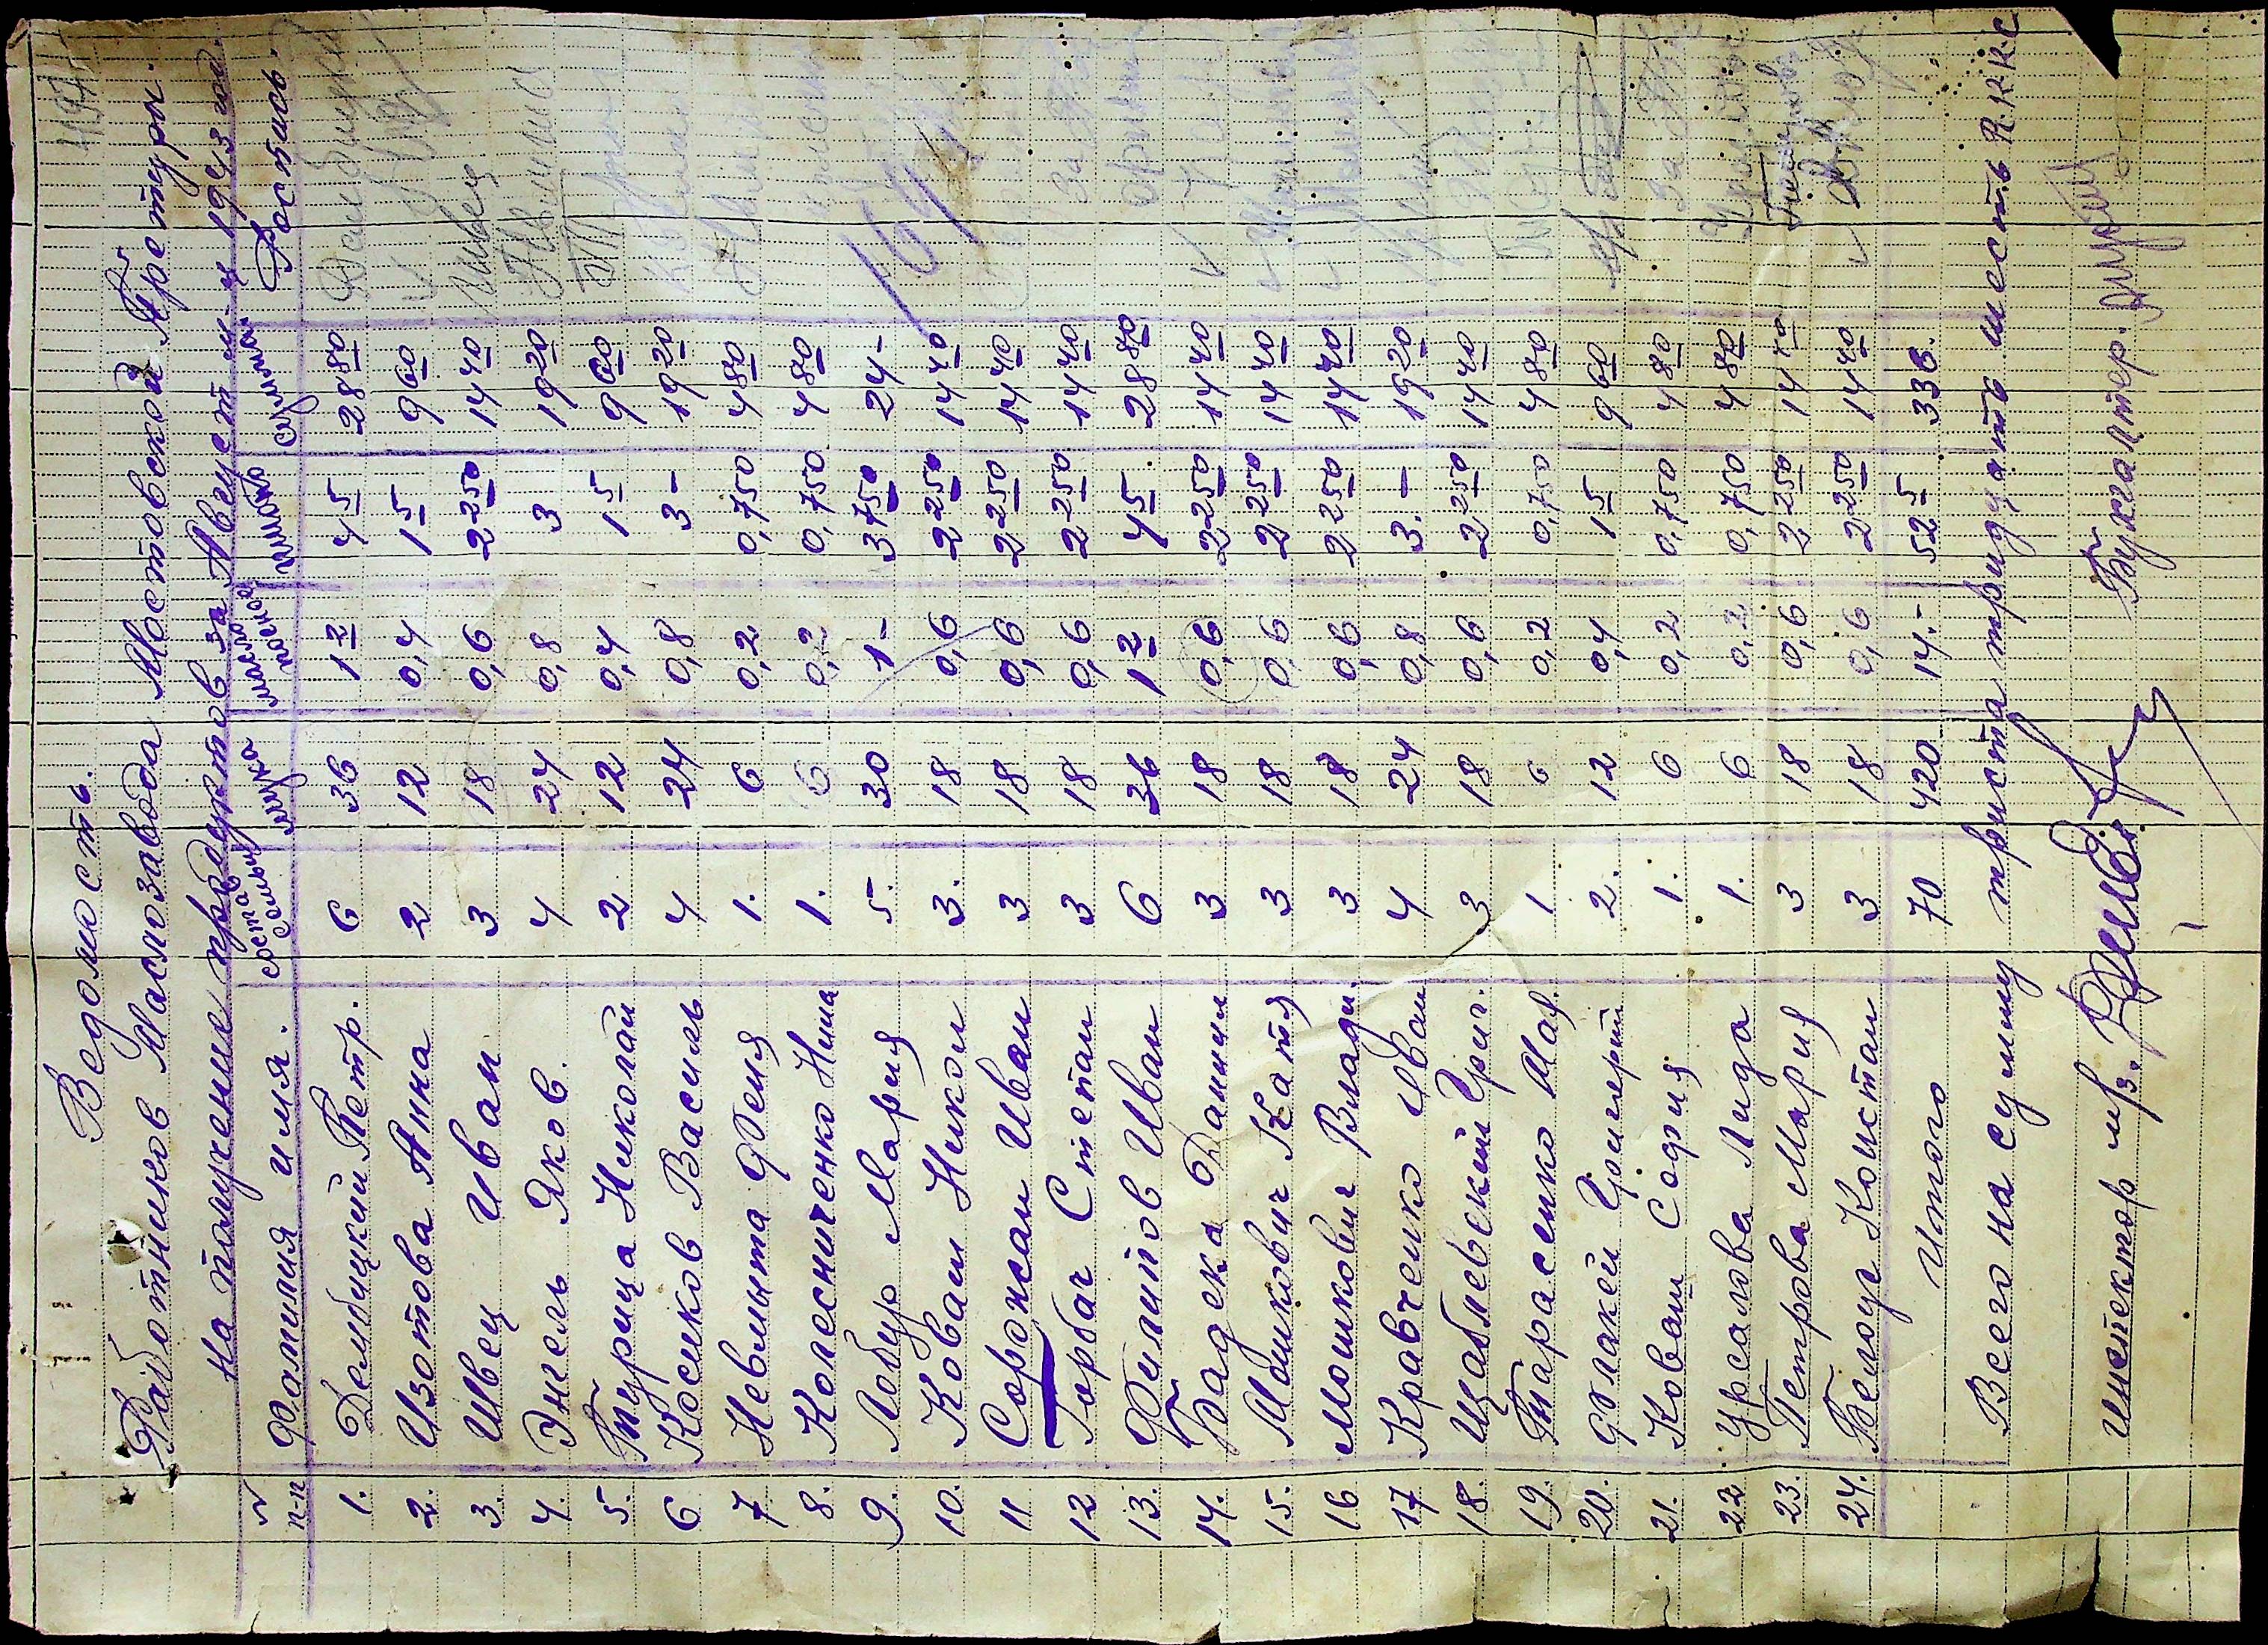 Ведомость.
Работников Маслозавода Мостовской Претуры.
На получение продуктов за Август м-ц 1943 год.
№ п-п Фамилия и имя. состав семьи мука масло постное пшено сумма. Роспись.
1. Дембицкий Петр. 6 36 1 2 4 5 28 80
2. Изотова Анна 2 12 0,4 1 5 9 60
3. Швец Иван 3 18 0,6 2 250 14 40 Швец
4. Энгель Яков. 4 24 0,8 3 19 20
5. Турица Николай 2 12 0,4 1 5 9 60
6. Косиков Василь 4 24 0,8 3 - 19 20
7 Невмыта Феня 1. 6 0,2 0,750 4 80
8. Колесниченко Нина 1. 6 0,2 0,750 4 80
9. Лобур Мария 5. 30 1 - 3 750 24 -
10. Коваш Никол 3. 18 0,6 2 250 14 40
11 Сорожан Иван 3 18 0,6 2 250 14 40
12 Горбач Степан 3 18 0,6 2 250 14 40
13. Филипов Иван 6 36 1 2 4 5 28 80
14. Бадека Даниил 3 18 0,6 2 250 14 40
15. Мошкович Катя 3 18 0,6 2 250 14 40
16. Мошкович Влади. 3 18 0,6 2 250 14 40
17 Кравченко Иван 4 24 0,8 3. - 19 20
18. Щаблевский Григ. 3 18 0,6 2 250 14 40
19. Тарасенко Мар. 1 6 0,2 0,750 4 80
20. 2. 12 0,4 1 5 9 60
21. Коваш София 1. 6 0,2 0,750 4 80
22 Урсалова Лида 1. 6 0,2 0,750 4 80
23. Петрова Мария 3 18 0,6 2 250 14 40
24. Белоус Констан 3 18 0,6 2 250 14 40
Итого 70 420 14. - 52 5 336.
Всего на сумму триста тридцать шесть RKKS
Инспектор мз. Бухгалтер.